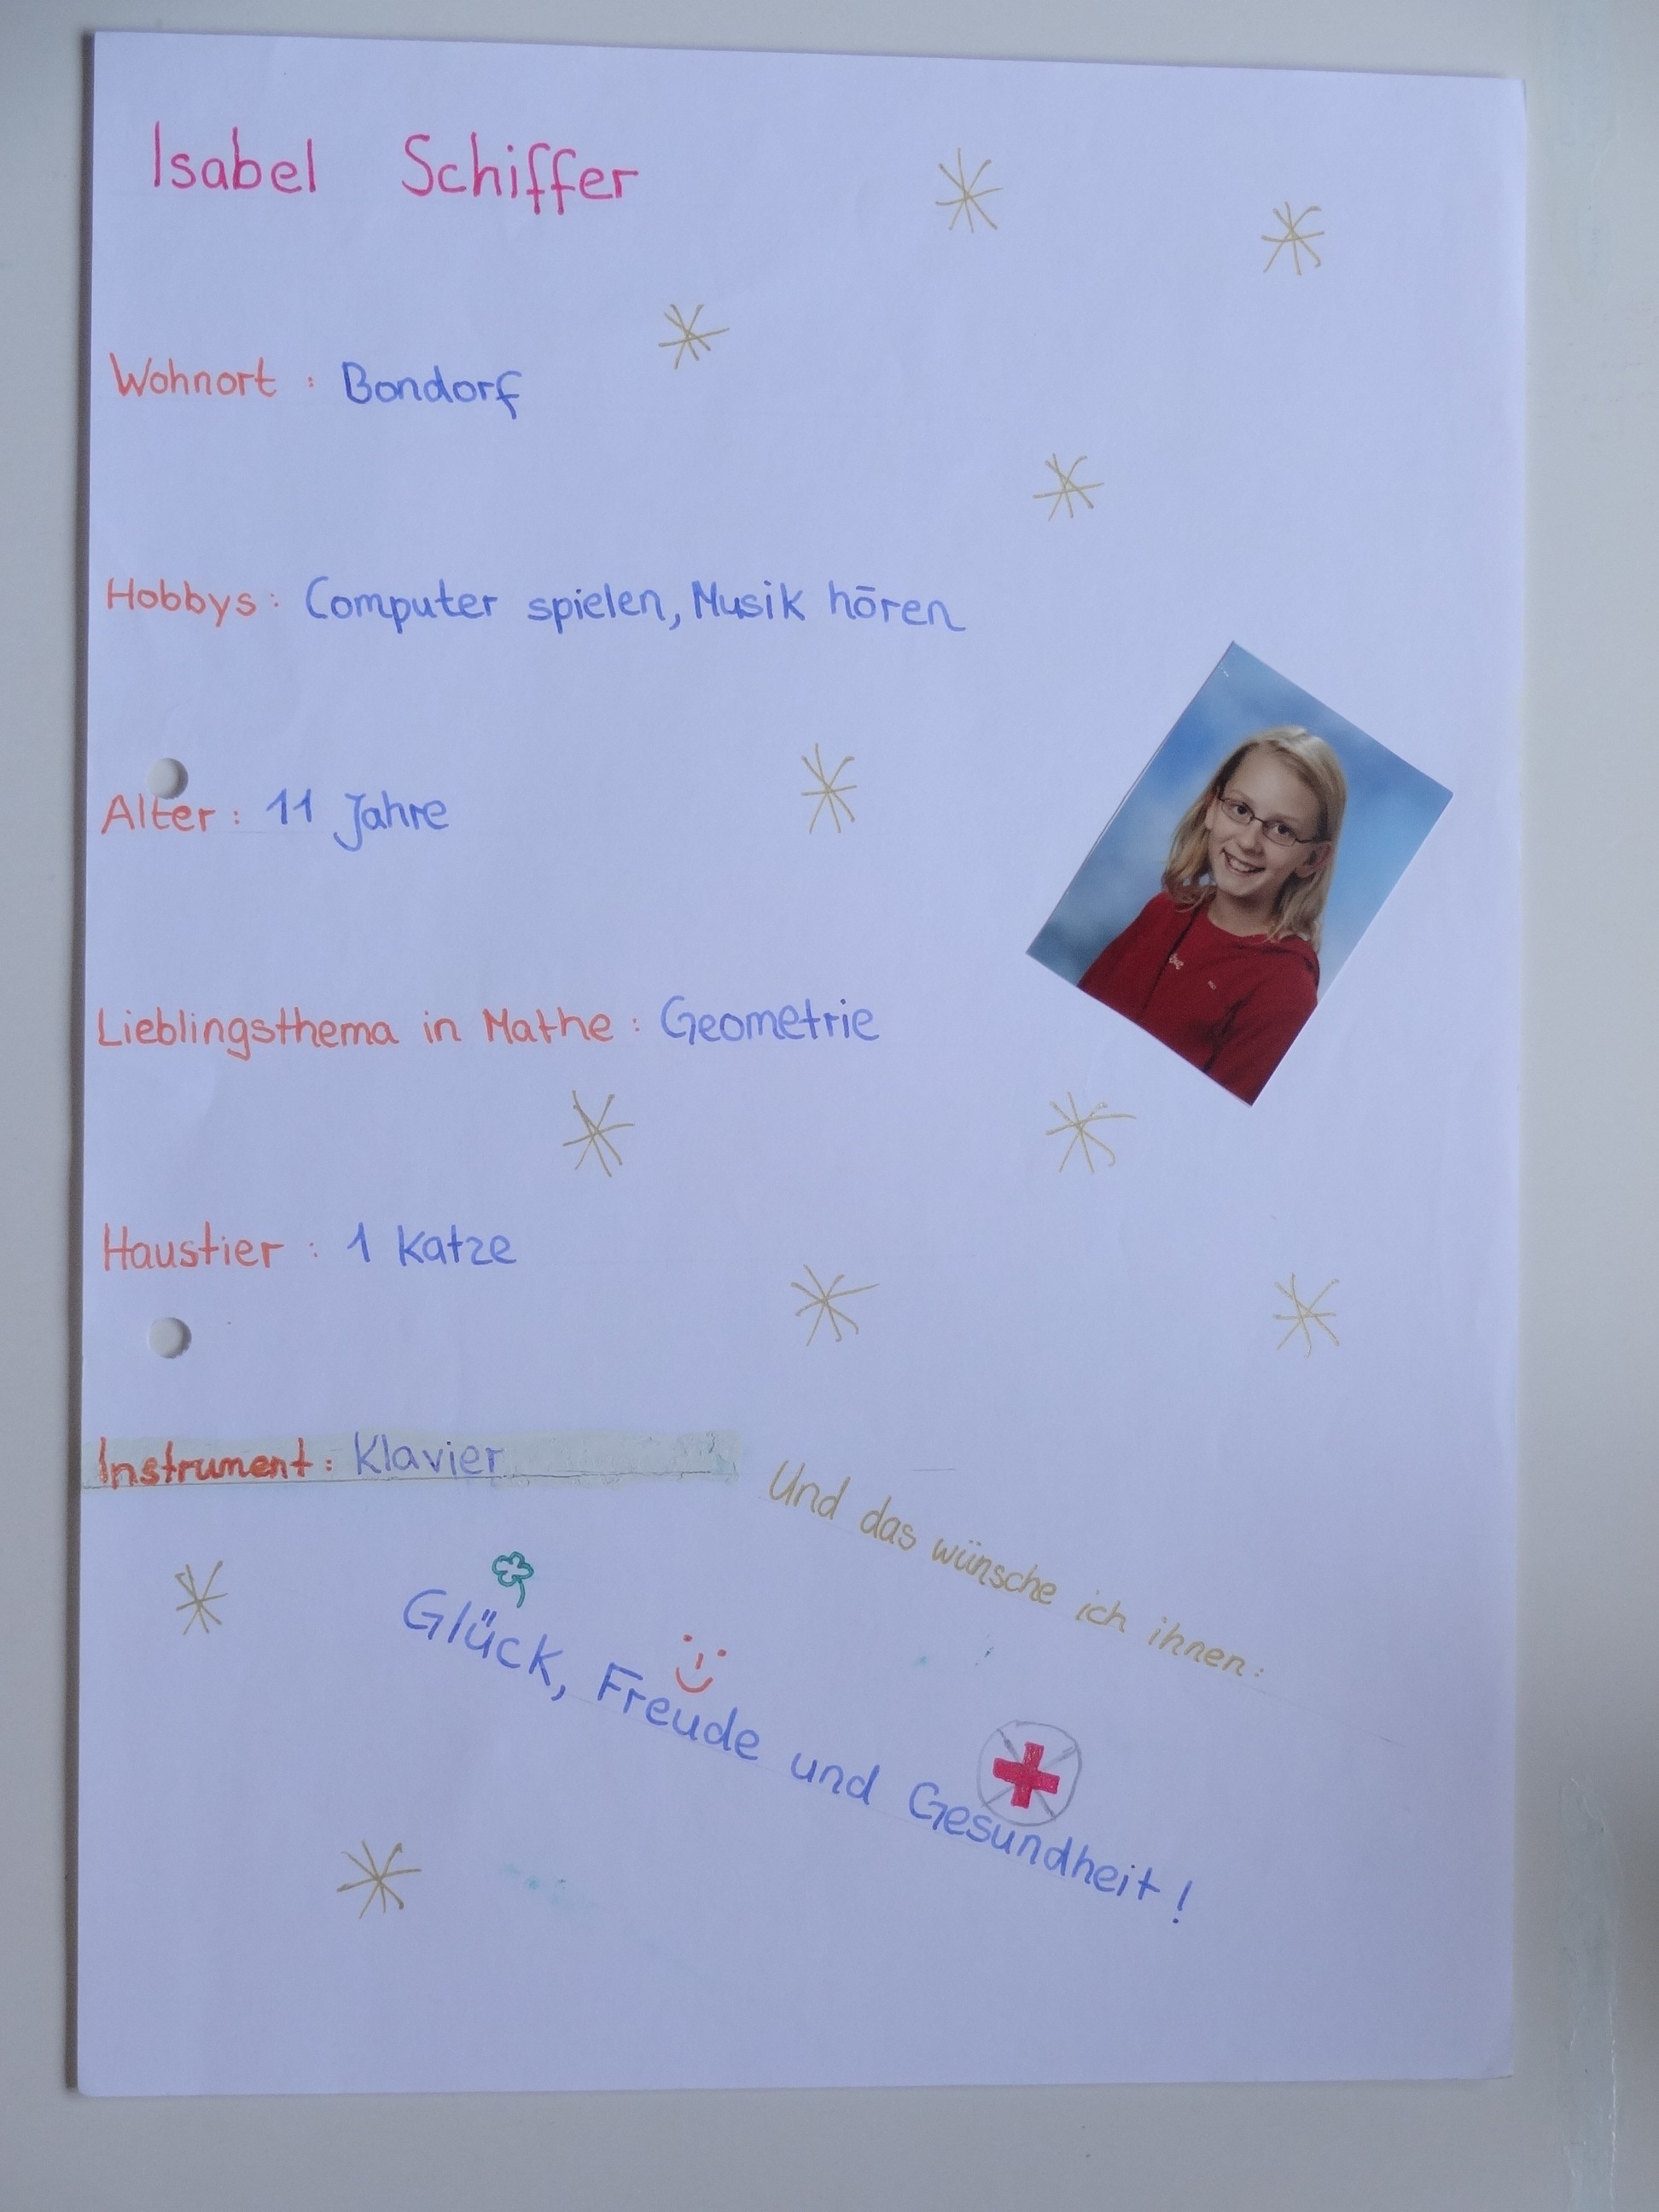 Isabel Schiffer
Wohnort : Bondorf
Hobbys : Computer spielen, Musik hören
Alter : 11 Jahre
Lieblingsthema in Mathe : Geometrie
Haustier : 1 Katze
Instrument : Klavier
Und das wünsche ich ihnen :
Glück, Freude und Gesundheit !